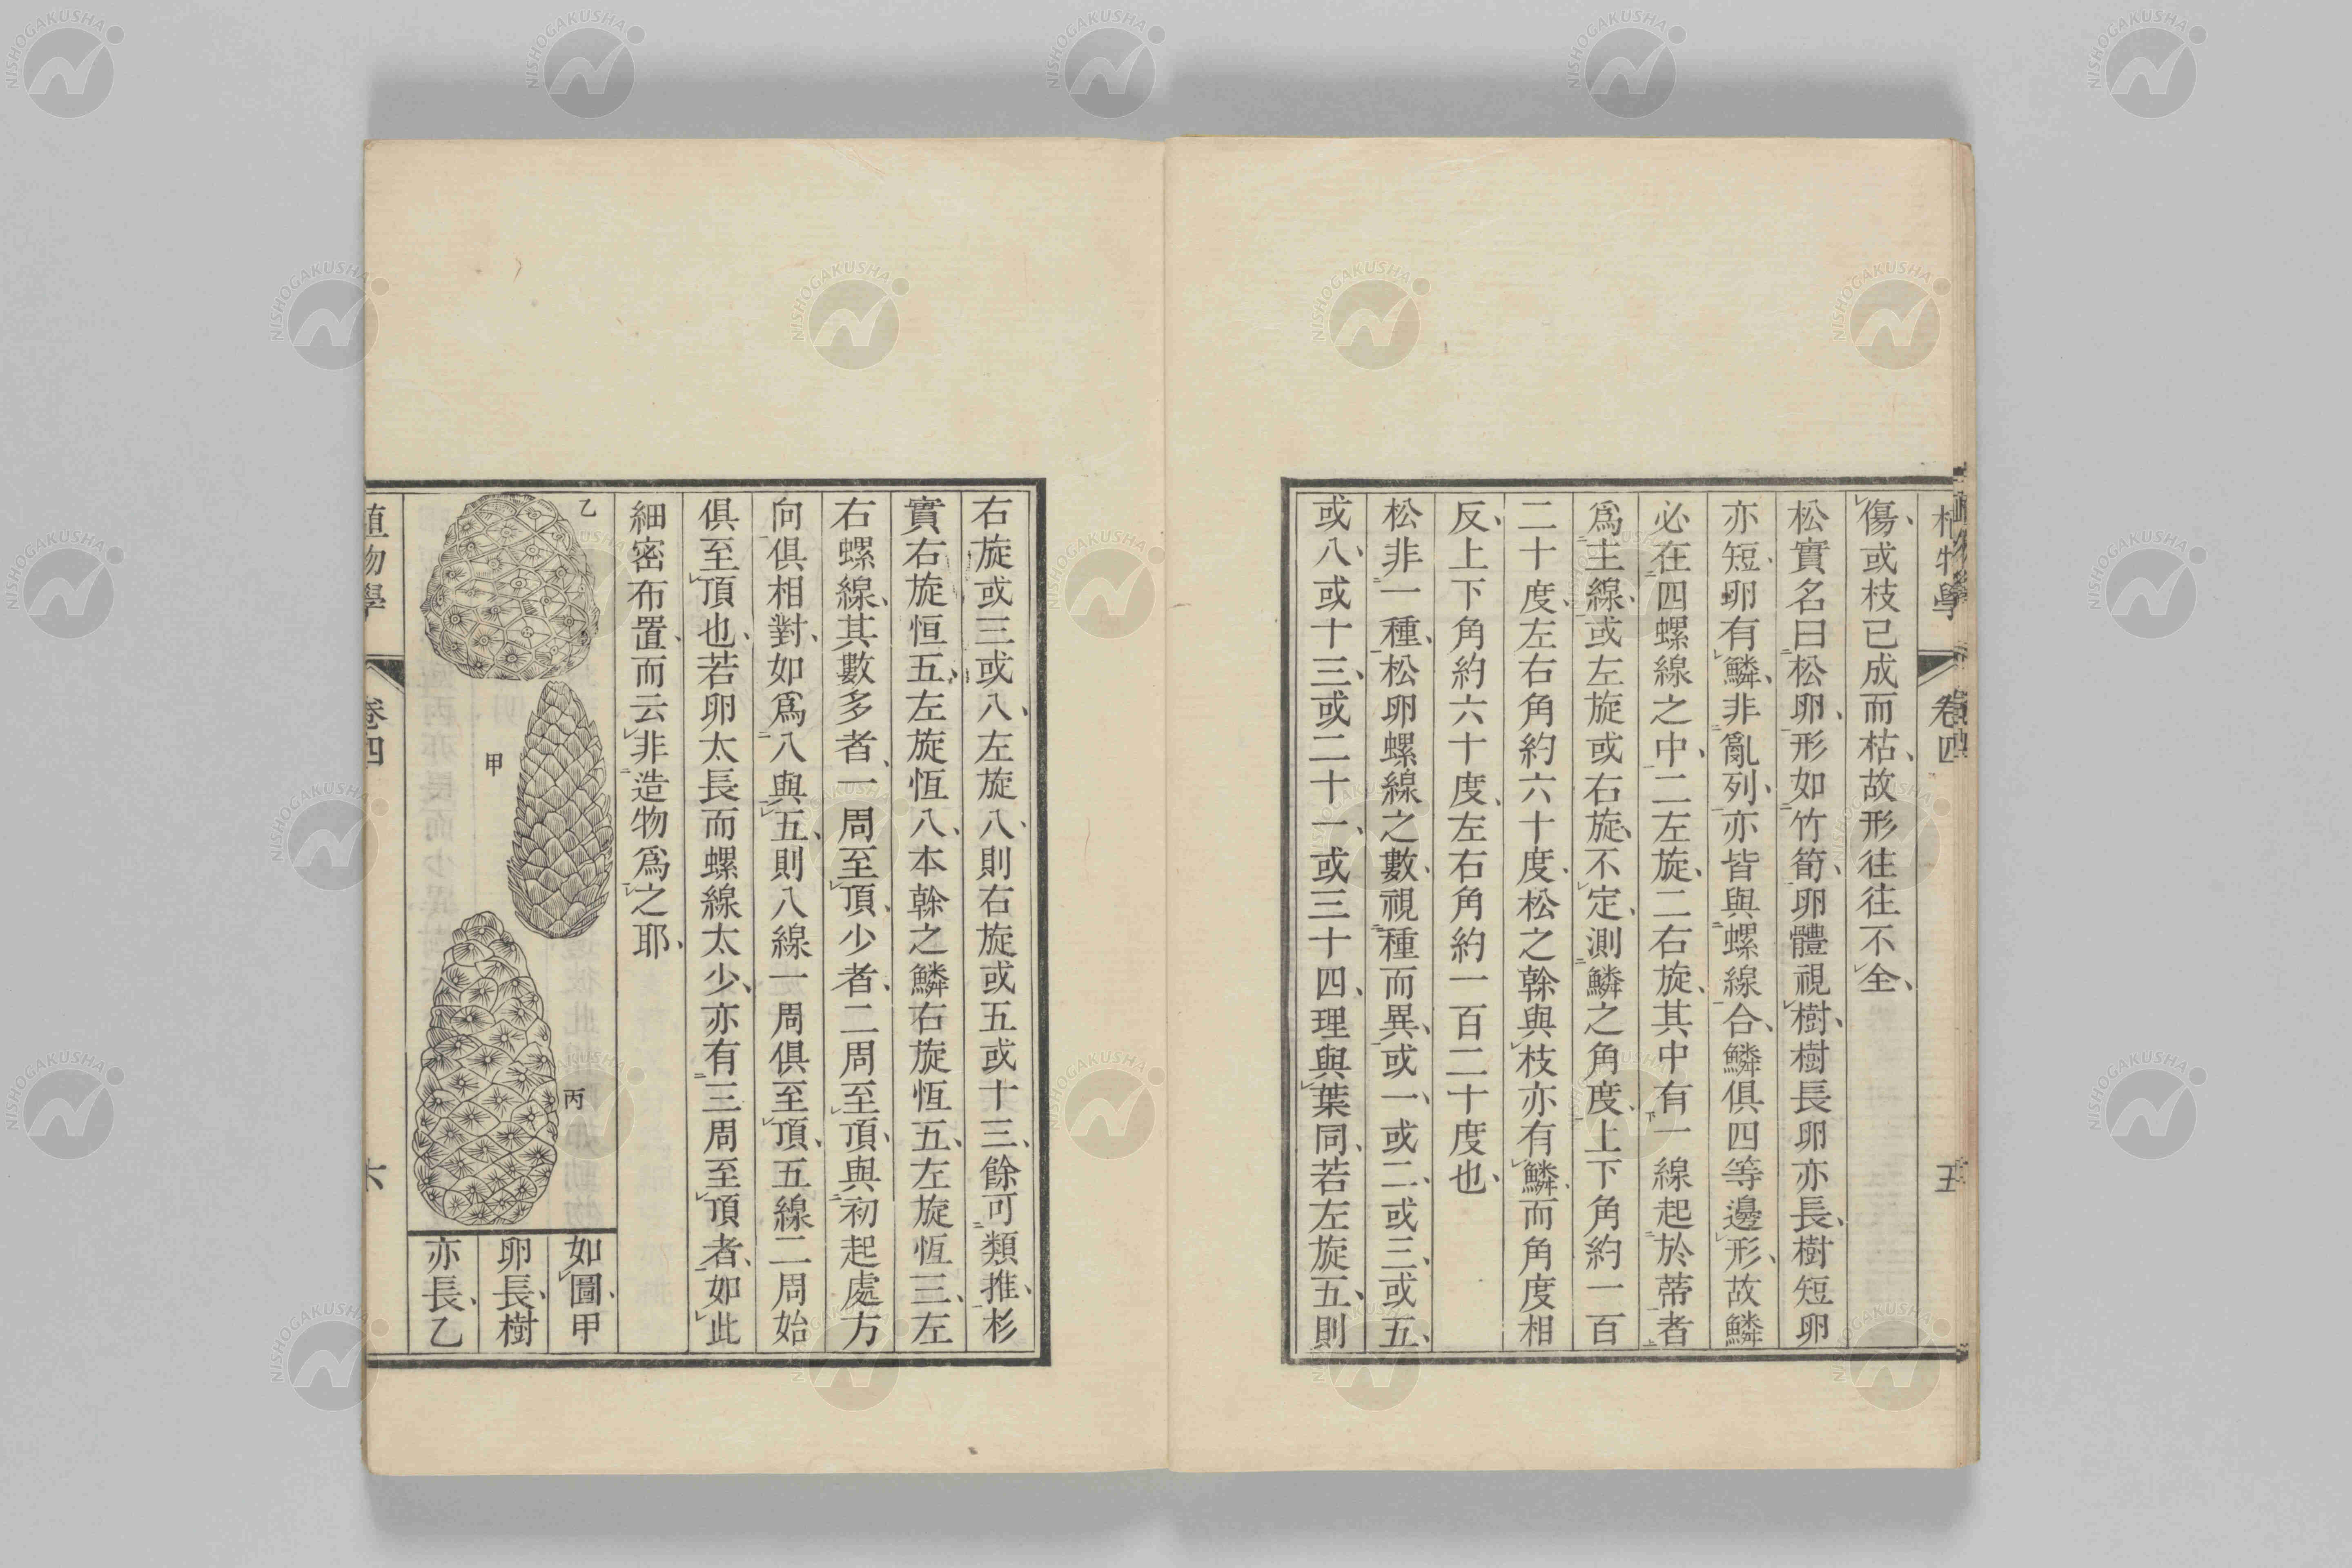 植物學 卷四 五
傷、或枝已成而枯、故形往往不全、
松實名曰松卵、形如竹筍、卵體視樹、樹長卵亦長、樹短卵
亦短、卵有鱗、非亂列、亦皆與螺線合、鱗俱四等邊形、故鱗
必在四螺線之中、二左旋、二右旋、其中有一線起於蒂者
爲主線、或左旋或右旋、不定、測鱗之角度、上下角約一百
二十度、左右角約六十度、松之榦與枝亦有鱗、而角度相
反、上下角約六十度、左右角約一百二十度也、
松非一種、松卵螺線之數、視種而異、或一、或二、或三、或五、
或八、或十三、或二十一、或三十四、理與葉同、若左旋五、則
右旋或三或八、左旋八、則右旋或五或十三、餘可類推、杉
實右旋恒五、左旋恆八、本榦之鱗右旋恆五、左旋恆三、左
右螺線、其數多者、一周至頂、少者、二周至頂、與初起處方
向俱相對、如爲八與五、則八線一周俱至頂、五線二周始
俱至頂也、若卵太長而螺線太少、亦有三周至頂者、如此
細密布置、而云非造物爲之耶、
乙
甲
丙
如圖、甲
卵長、樹
亦長、乙
植物學 卷四 六
NISHOGAKUSHA